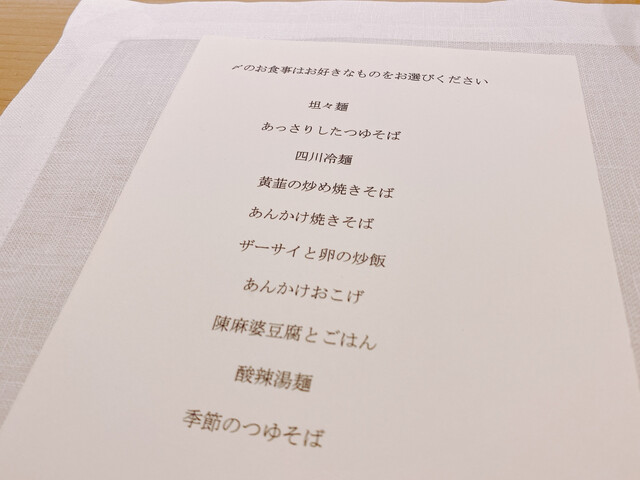 〆のお食事はお好きなものをお選びください
坦々麺
あっさりしたつゆそば
四川冷麺
黄韮の炒め焼きそば
あんかけ焼きそば
ザーサイと卵の炒飯
あんかけおこげ
陳麻婆豆腐とごはん
酸辣湯麺
季節のつゆそば